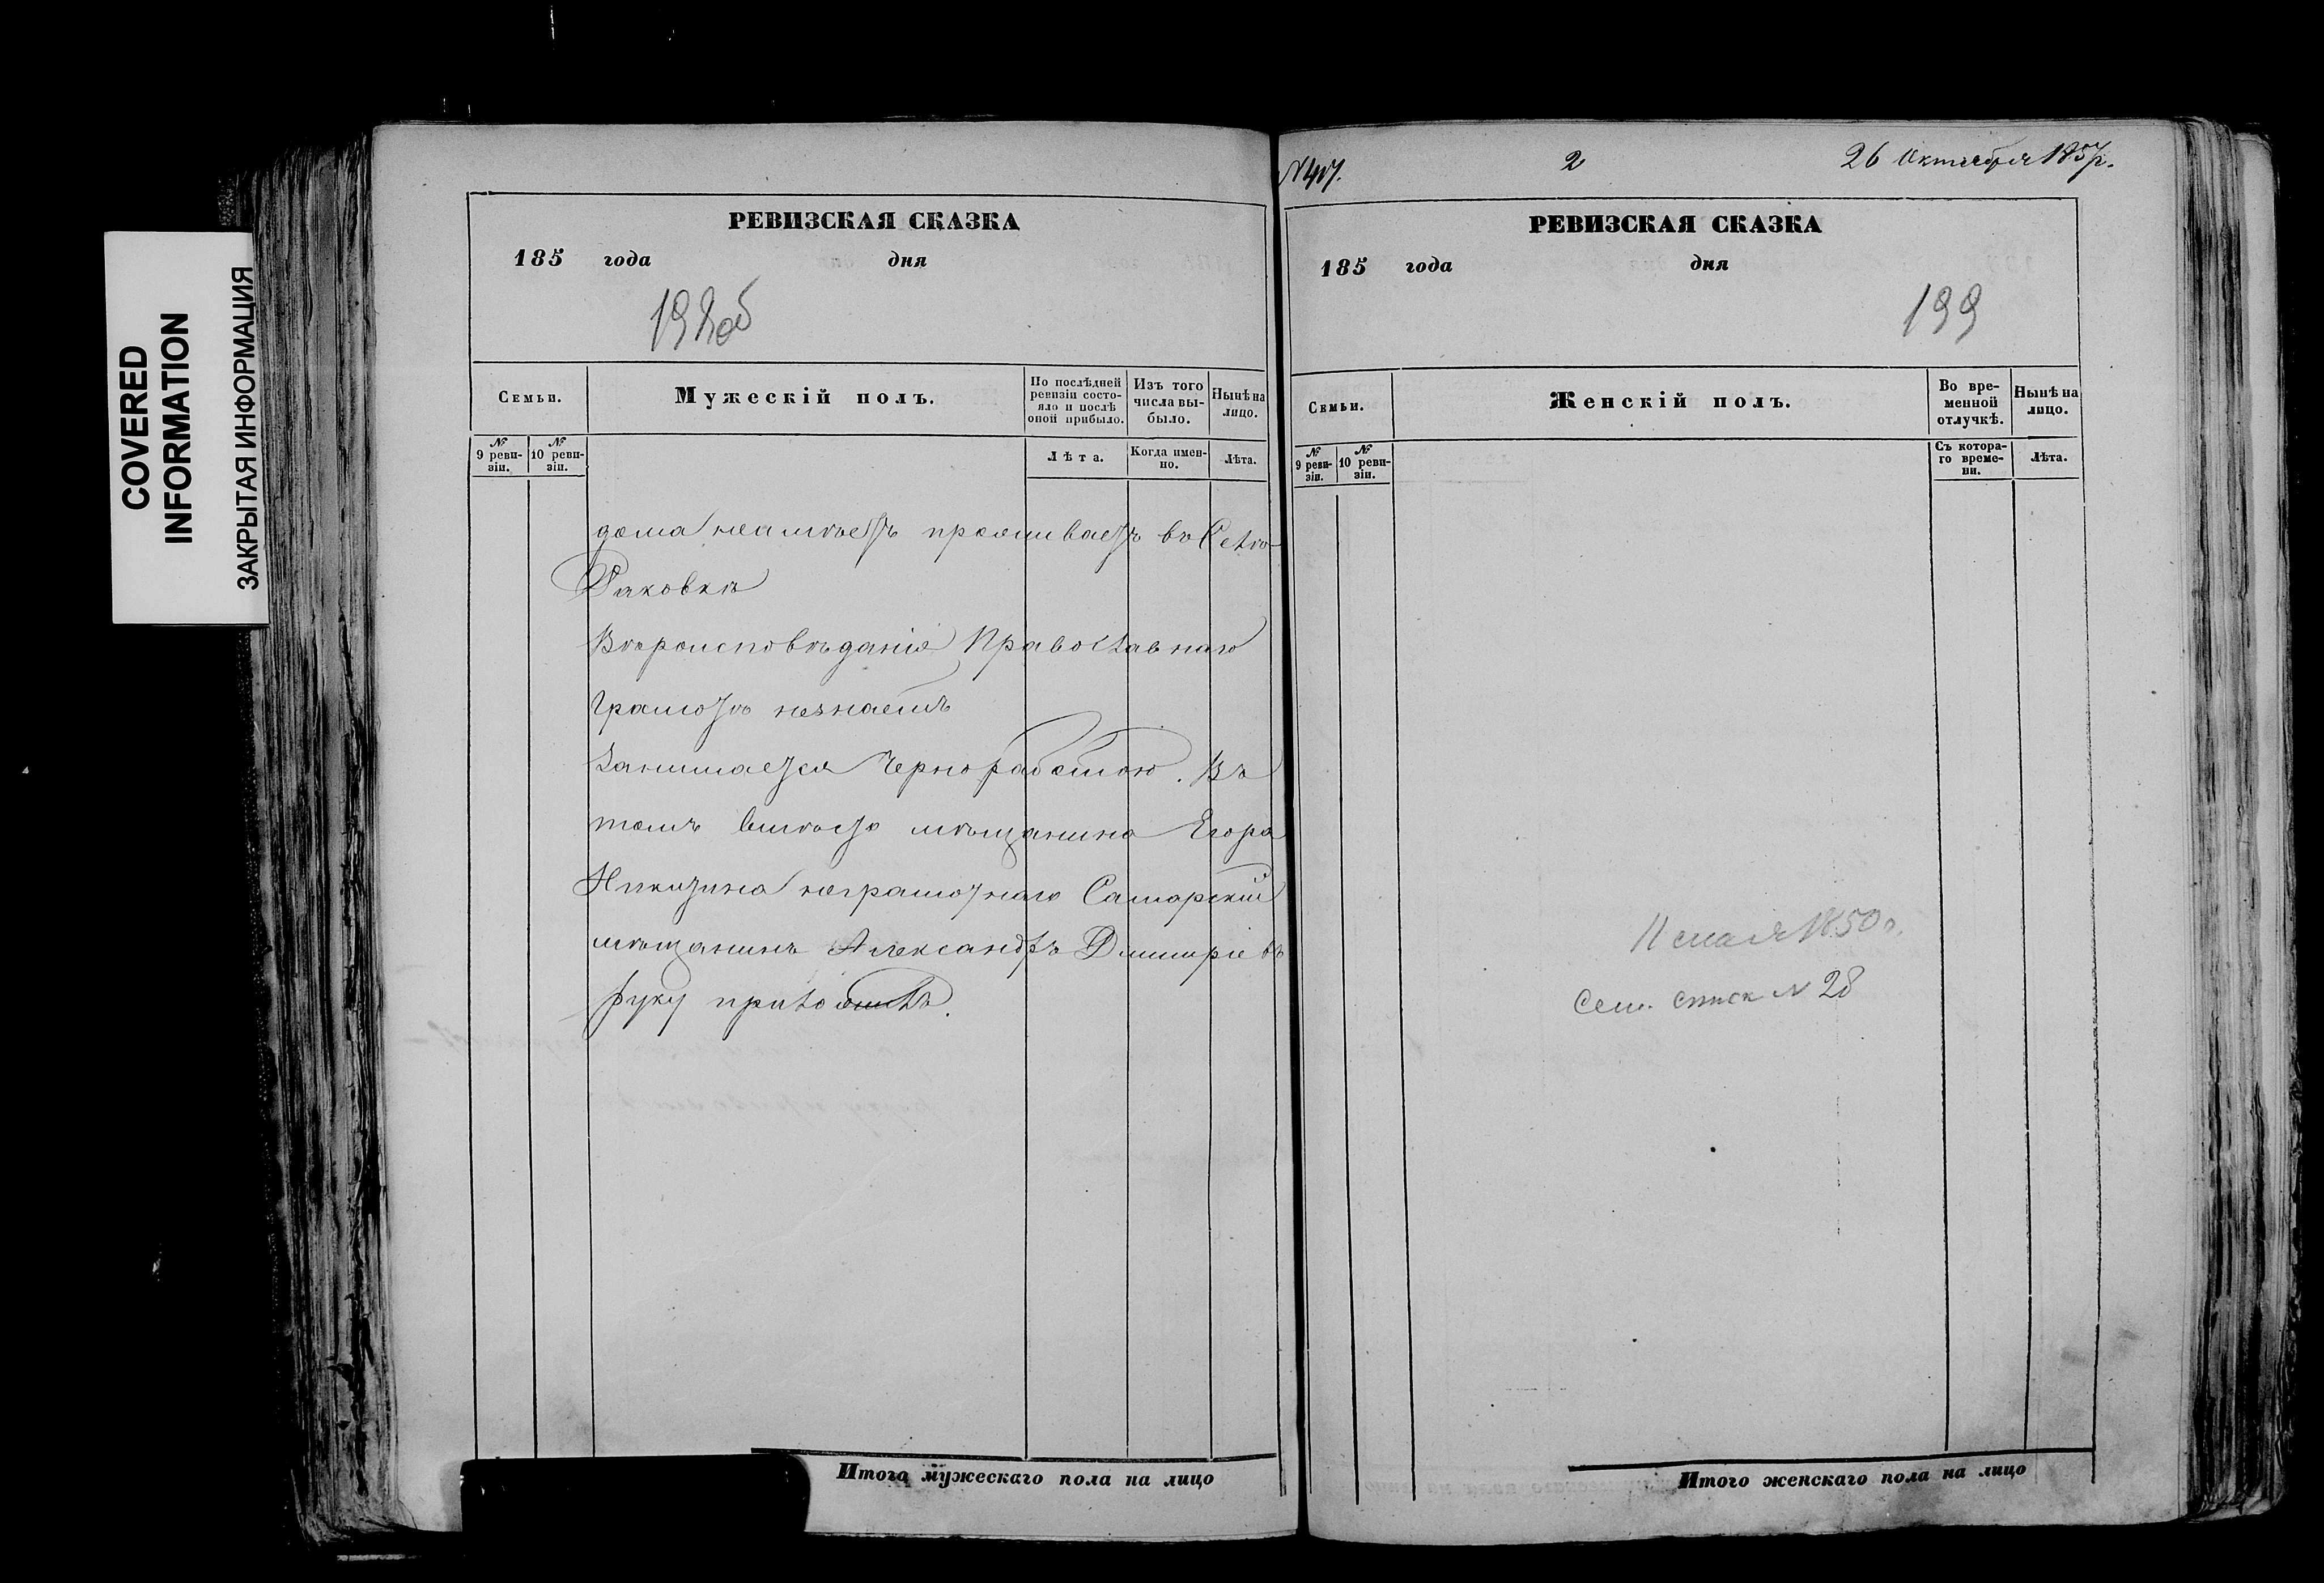 COVERED
INFORMATION
ЗАКРЫТАЯ ИНФОРМАЦИЯ
РЕВИЗСКАЯ СКАЗКА
185 года дня
198об
Семьи.
Мужескій полъ.
По послѣдней ревизіи состояло и послѣ оной прибыло.
Изъ того числа выбыло.
Нынѣ на лицо.
№ 9 ревизіи.
№ 10 ревизіи.
Лѣта.
Когда именно.
Лѣта.
дома неимѣетъ проживаетъ въ Селѣ
Раковкѣ
Вѣроисповѣданія Православнаго
Грамотѣ незнаетъ
Занимается Черноработою. Въ
томъ вмѣсто мѣщанина Егора
Никитина неграмотнаго Самарскій
мѣщанинъ Александръ Дмитріевъ
руку приложилъ.
Итого мужескаго пола на лицо
2
26 Октября 1857г.
РЕВИЗСКАЯ СКАЗКА
185 года дня
199
Семьи.
Женскій полъ.
Во временной отлучкѣ.
Нынѣ на лицо.
№ 9 ревизіи.
№ 10 ревизіи.
Съ котораго времени.
Лѣта.
11 мая 1850г.
Сем. списк № 28
Итого женскаго пола на лицо